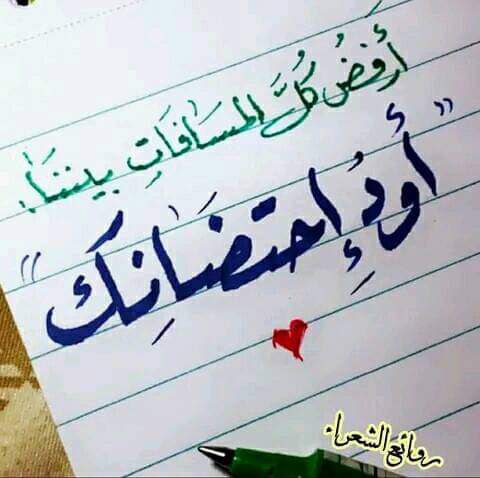 أرفضُ كُلَّ المسافَاتِ بيننَا.
"أودُّ إحتضَانِك"
روائع الشعراء